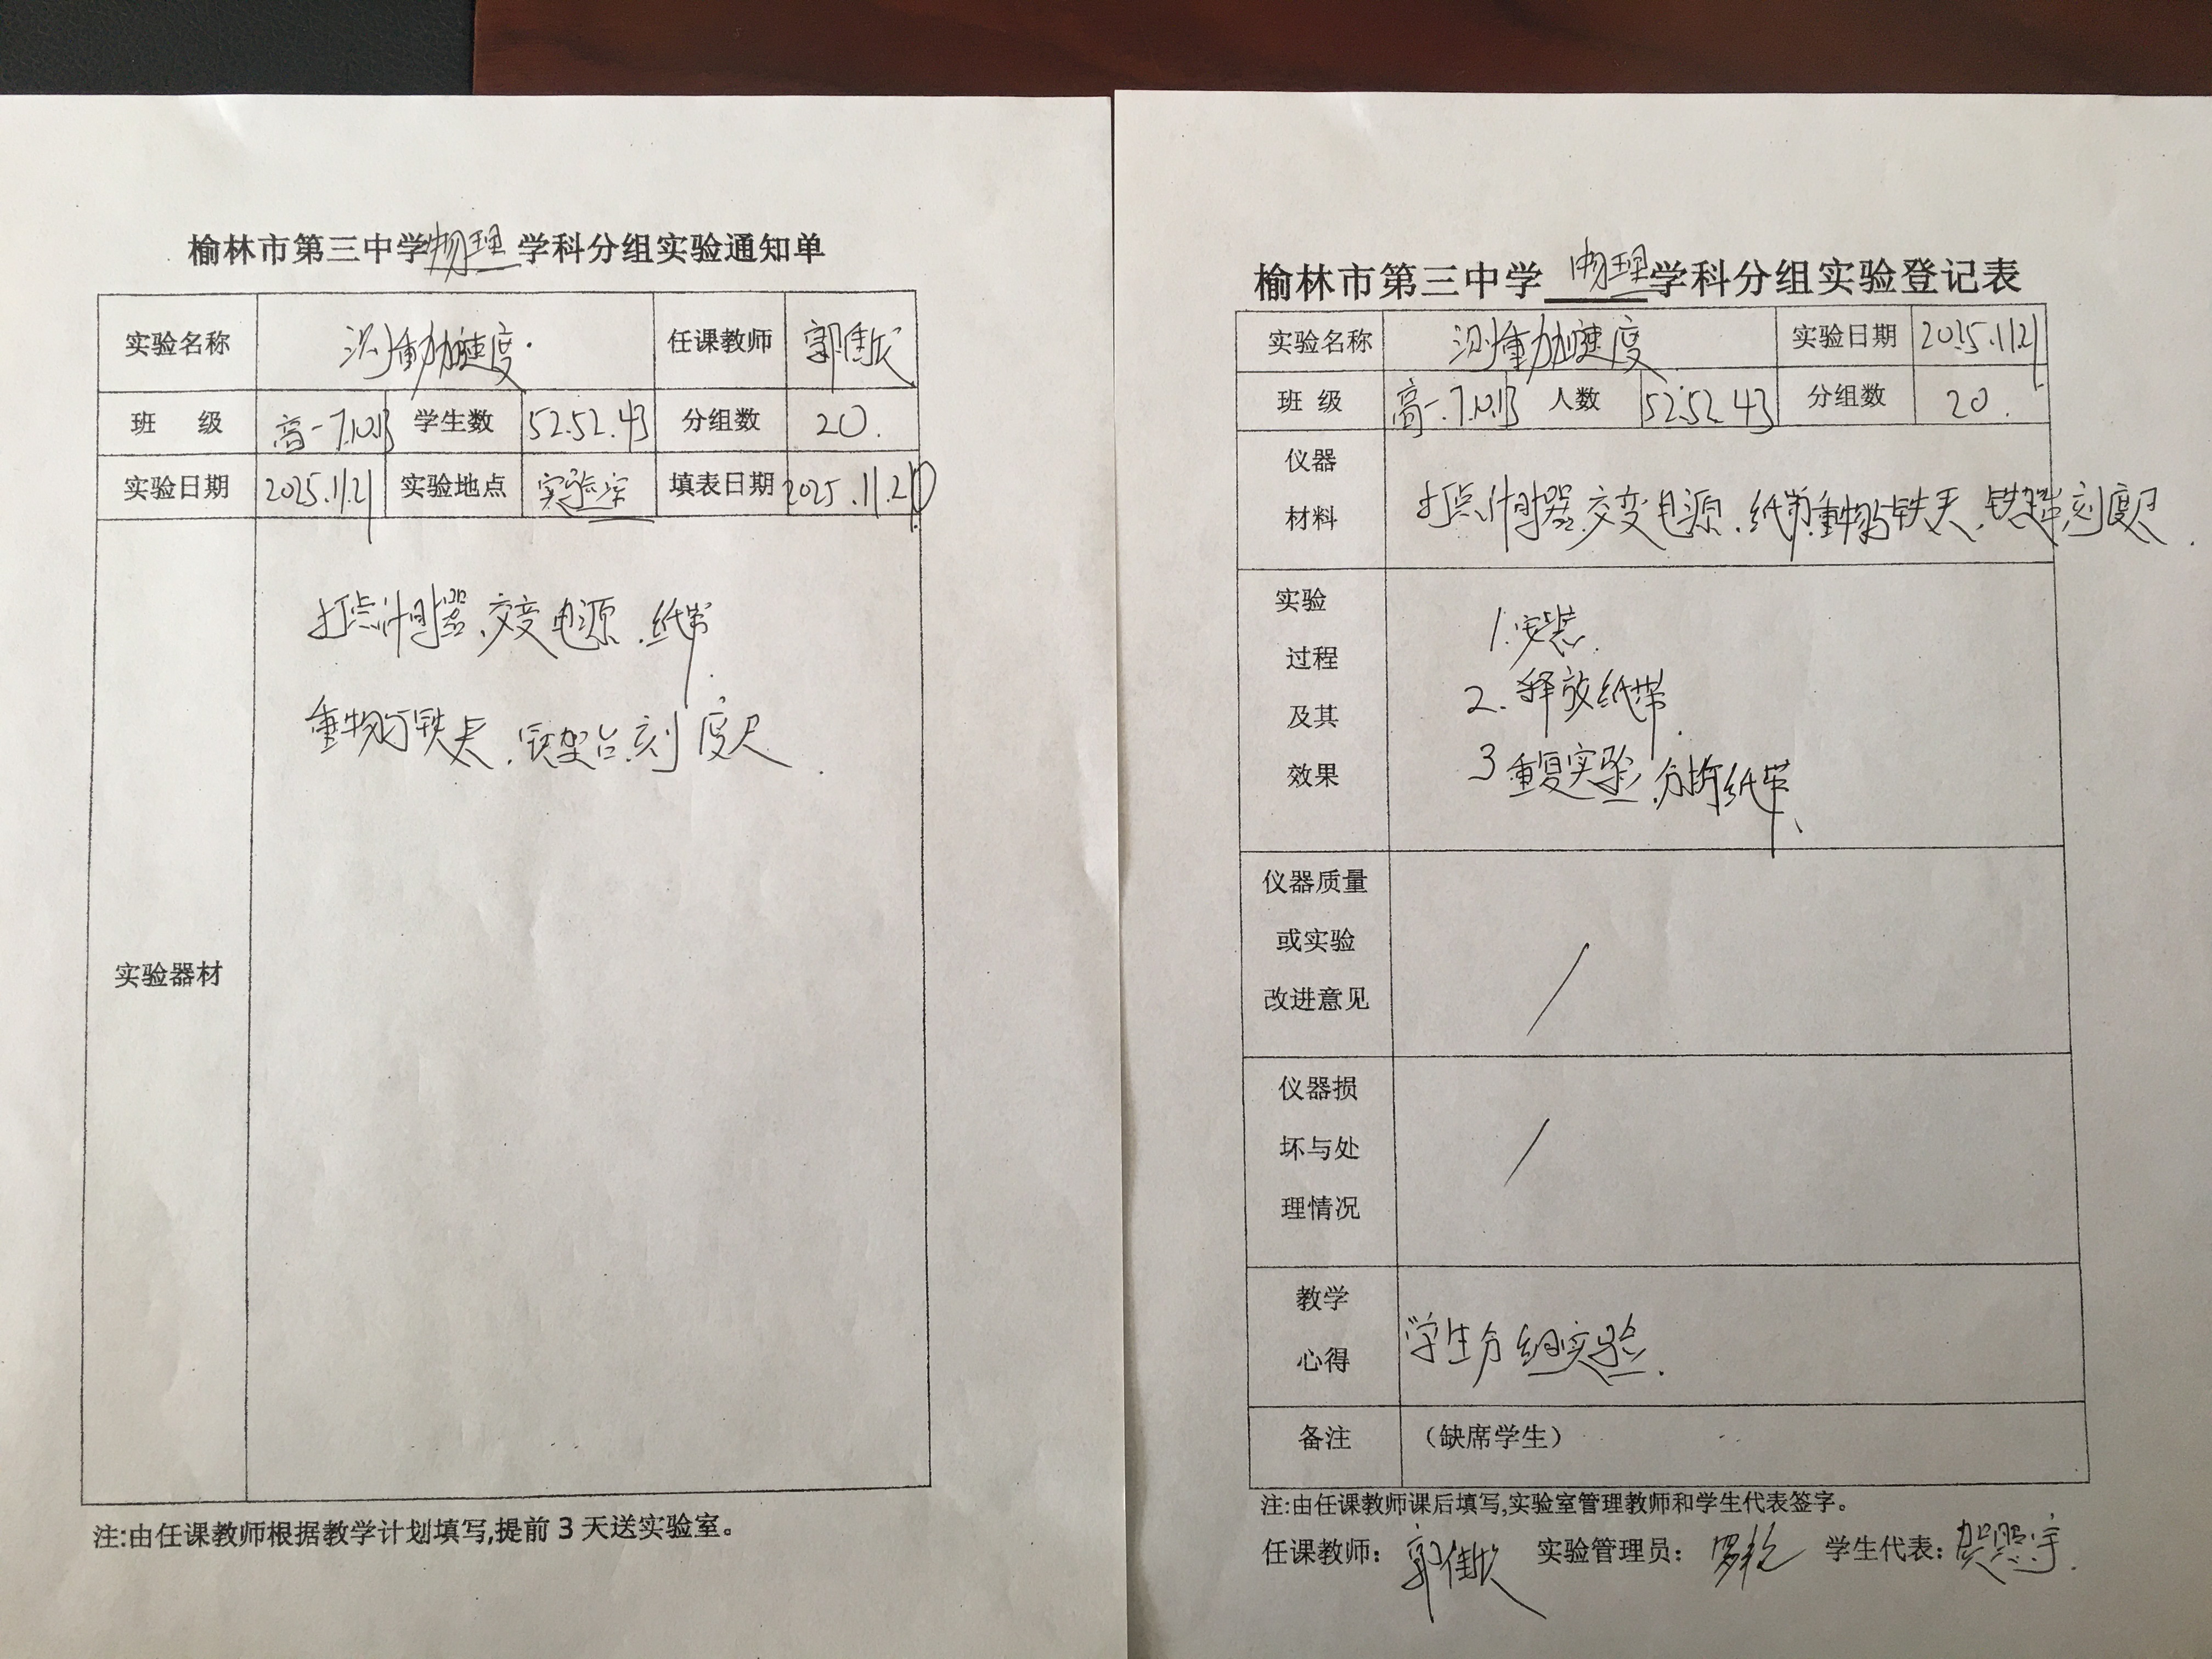 榆林市第三中学物理学科分组实验通知单
实验名称 测重力加速度. 任课教师 郭佳欣
班 级 高一7.10.13 学生数 52.52.43 分组数 20.
实验日期 2025.11.21 实验地点 实验室 填表日期 2025.11.20
实验器材
打点计时器、交变电源、纸带
重物与铁夹、铁架台、刻度尺.
注:由任课教师根据教学计划填写,提前3天送实验室。
榆林市第三中学 物理 学科分组实验登记表
实验名称 测重力加速度 实验日期 2025.11.21
班 级 高一.7.10.13 人数 52.52.43 分组数 20.
仪器
材料
打点计时器、交变电源、纸带、重物与铁夹、铁架台、刻度尺.
实验
过程
及其
效果
1.安装.
2.释放纸带.
3重复实验,分析纸带、
仪器质量
或实验
改进意见
/
仪器损
坏与处
理情况
/
教学
心得
学生分组实验.
备注 （缺席学生）
注:由任课教师课后填写,实验室管理教师和学生代表签字。
任课教师: 郭佳欣 实验管理员: 学生代表: